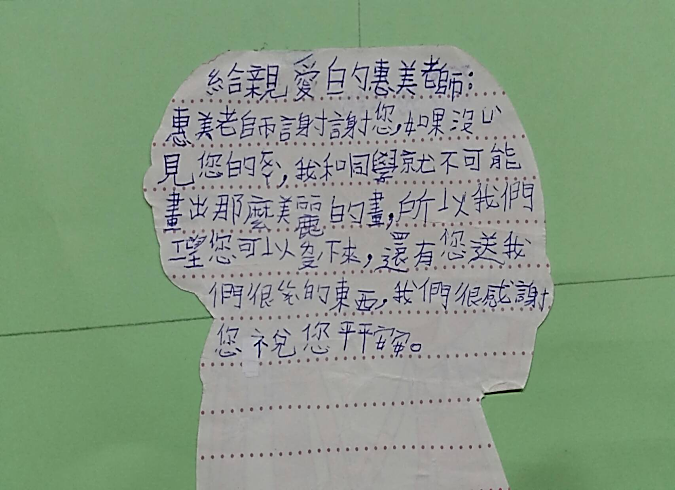 給親愛的惠美老師:
惠美老師謝謝您,如果沒以
見您的,我和同學就不可能
畫出那麼美麗的畫,所以我們
望您可以留下來,還有您送我
們很多的東西,我們很感謝
您祝您平平安安。